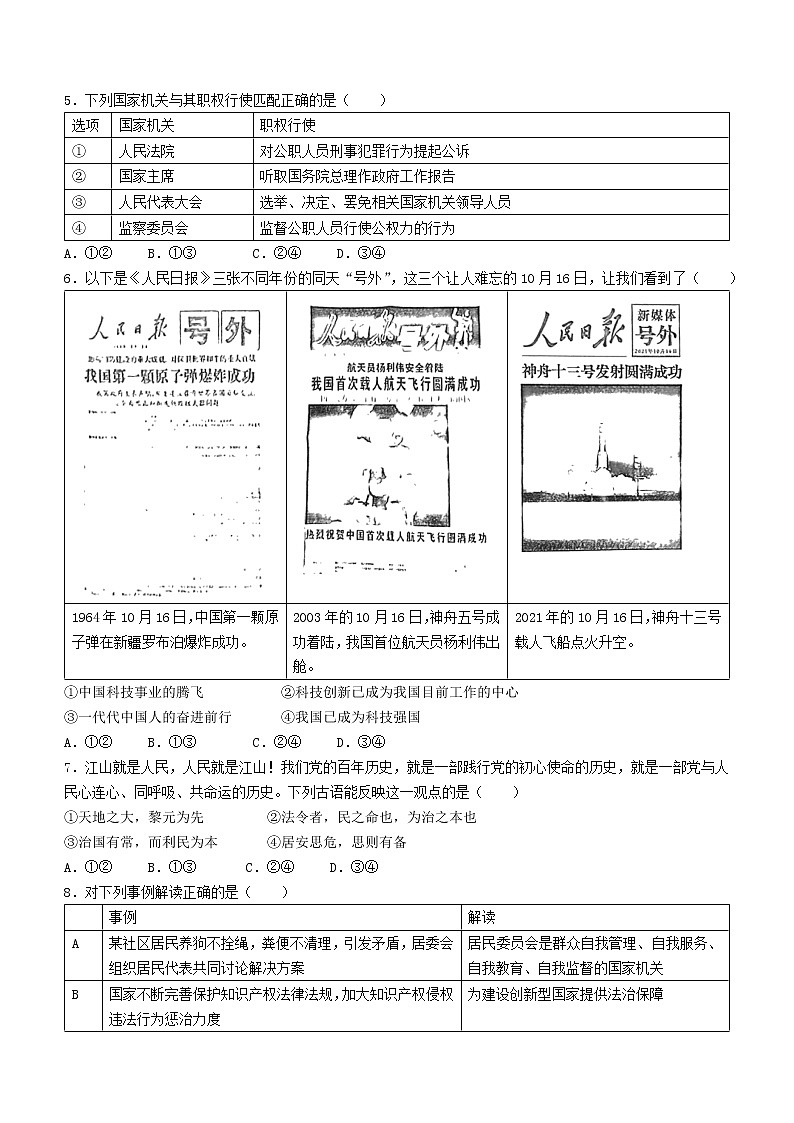 5．下列国家机关与其职权行使匹配正确的是（　　）
选项 国家机关 职权行使
① 人民法院 对公职人员刑事犯罪行为提起公诉
② 国家主席 听取国务院总理作政府工作报告
③ 人民代表大会 选举、决定、罢免相关国家机关领导人员
④ 监察委员会 监督公职人员行使公权力的行为
A．①② B．①③ C．②④ D．③④
6．以下是《人民日报》三张不同年份的同天“号外”，这三个让人难忘的10月16日，让我们看到了（　　）
人民日报 号外
我国第一颗原子弹爆炸成功
人民日报号外
航天员杨利伟安全着陆
我国首次载人航天飞行圆满成功
热烈祝贺中国首次载人航天飞行圆满成功
人民日报 新媒体
号外
2021年10月16日
神舟十三号发射圆满成功
1964年10月16日，中国第一颗原
子弹在新疆罗布泊爆炸成功。
2003年的10月16日，神舟五号成
功着陆，我国首位航天员杨利伟出
舱。
2021年的10月16日，神舟十三号
载人飞船点火升空。
①中国科技事业的腾飞 ②科技创新已成为我国目前工作的中心
③一代代中国人的奋进前行 ④我国已成为科技强国
A．①② B．①③ C．②④ D．③④
7．江山就是人民，人民就是江山！我们党的百年历史，就是一部践行党的初心使命的历史，就是一部党与人
民心连心、同呼吸、共命运的历史。下列古语能反映这一观点的是（　　）
①天地之大，黎元为先 ②法令者，民之命也，为治之本也
③治国有常，而利民为本 ④居安思危，思则有备
A．①② B．①③ C．②④ D．③④
8．对下列事例解读正确的是（　　）
事例 解读
A 某社区居民养狗不拴绳，粪便不清理，引发矛盾，居委会
组织居民代表共同讨论解决方案
居民委员会是群众自我管理、自我服务、
自我教育、自我监督的国家机关
B 国家不断完善保护知识产权法律法规，加大知识产权侵权
违法行为惩治力度
为建设创新型国家提供法治保障